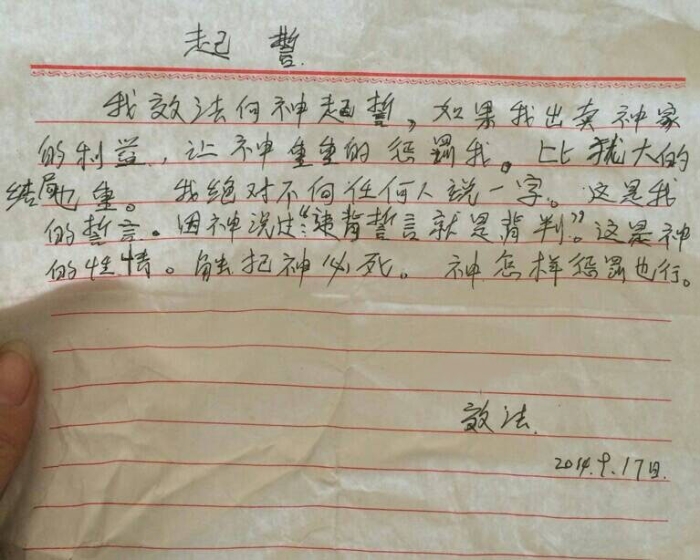 起誓
我效法向神起誓，如果我出卖神家
的利益，让神重重的惩罚我。比犹大的
结局也重。我绝对不向任何人说一字。这是我
的誓言。因神说过：“违背誓言就是背判”。这是神
的性情。触犯神必死。神怎样惩罚也行。
效法
2014.9.17日.